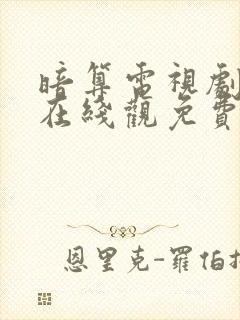 暗算電視劇
在綫觀免費
恩里克-羅伯